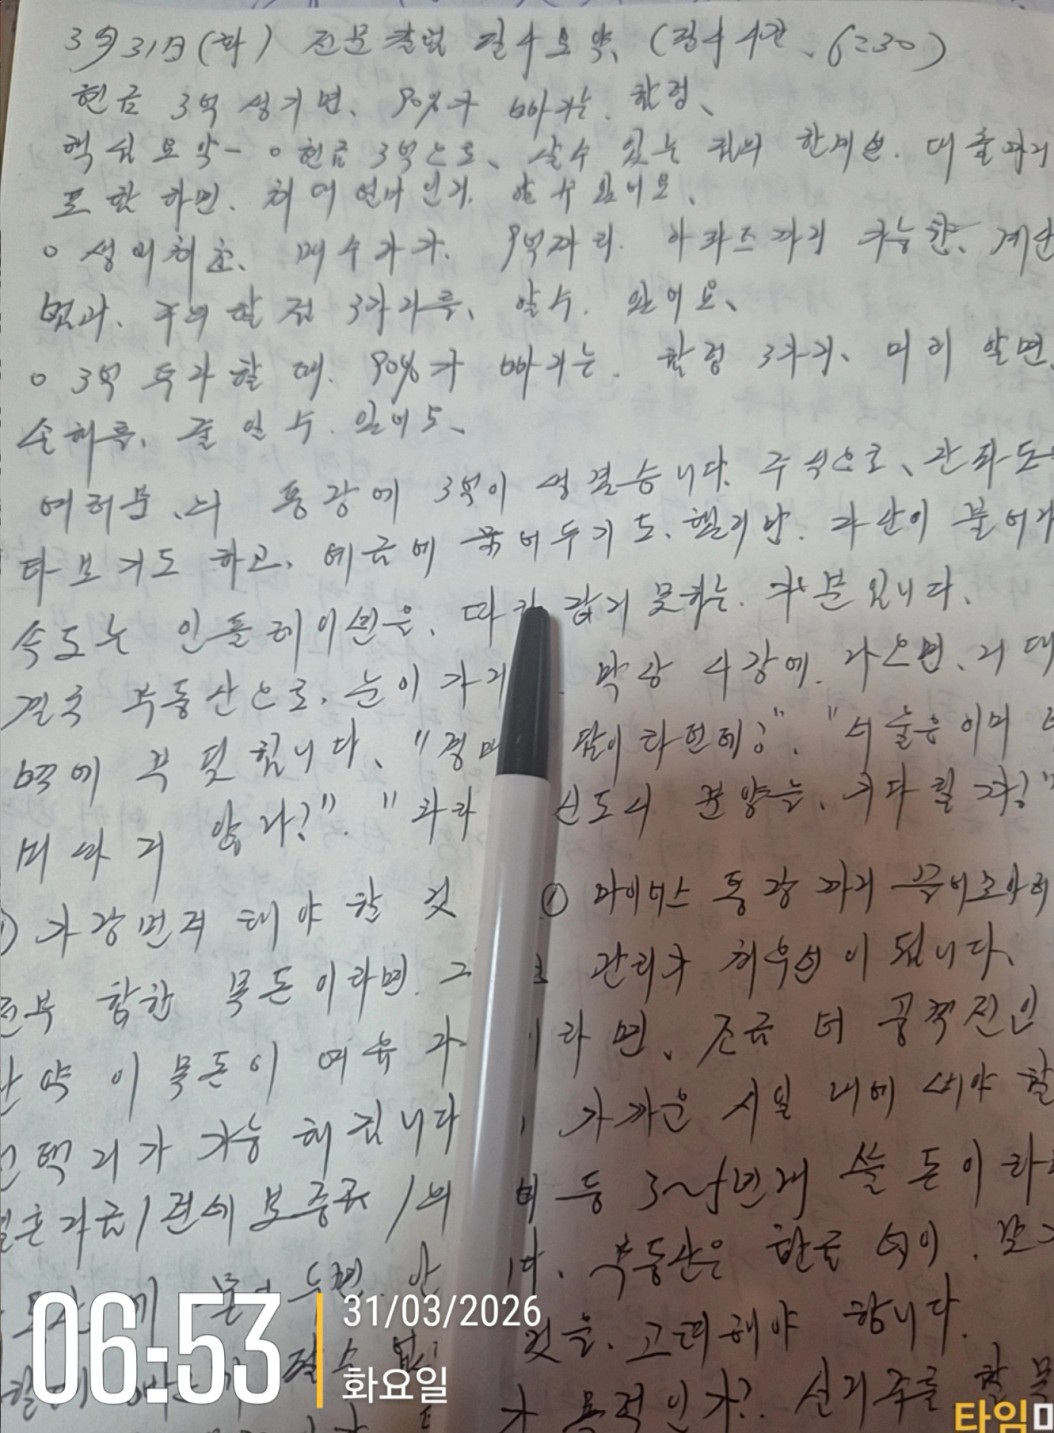 3월 31일(화) 전문 칼럼 필사요약, (필사시간, 6:30)
현금 3억 생기면, 90%가 빠지는, 함정,
핵심요약- o 현금 3억으로, 살수 있는 집의 한계선. 대출까지
포함하면. 최대 얼마인지, 알 수 있어요,
o 생애최초, 매수자가. 9억짜리. 아파트까지 가능한, 계산
법과, 주의할 점 3가지를, 알수. 있어요,
o 3억 투자할 때. 90%가 빠지는. 함정 3가지, 미리 알면
손해를, 줄일 수. 있어요,
여러분,의 통장에 3억이 생겼습니다. 주식으로,
타보기도 하고, 예금에 묶어두기도, 했지만. 자산이 불어나
속도는 인플레이션을, 따라 잡지 못하는. 기분입니다.
결국 부동산으로, 눈이 가지 막상 시장에. 나오면,
벽에 부딪힙니다, "경매 많이 하던데?", "서울은 이미
비싸지 않나?". "차라 신도시 분양을, 기다릴까?"
) 가장먼저 해야 할 것 ① 마이너스 통장 까지 끌어모아
전부 합한 목돈이라면. 그 관리가 최우선이 됩니다.
만약 이 목돈이 여유 자 이라면, 조금 더 공격적인
선택지가 가능해집니다 가까운 시일 내에 써야 할
결혼자금/전세 보증금/ 등 3~5년내 쓸 돈이라
부동산은 한번
것을, 고려해야 합니다.
실거주를
06:53
31/03/2026
화요일
타임